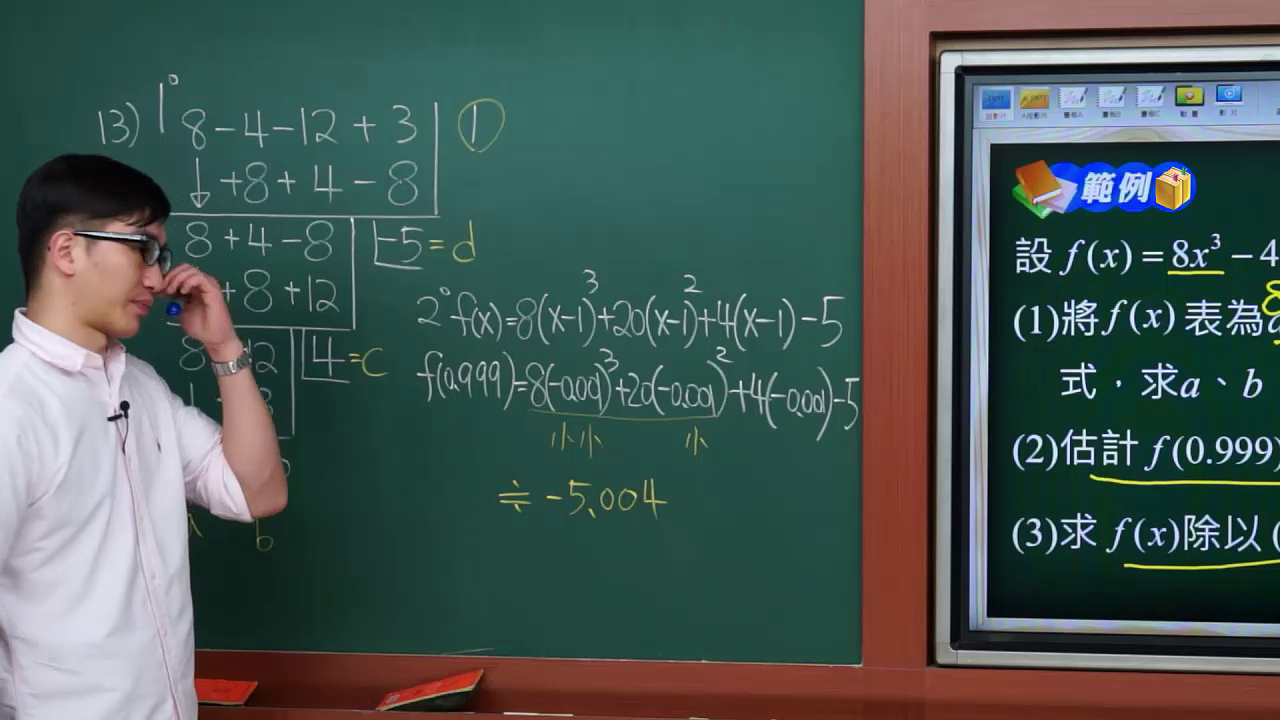 13) 1° 8 -4 -12 +3 | ①
+8 +4 -8
8 +4 -8 | -5 = d
+8 +12
8 12 | 4 = c
b
2° f(x)=8(x-1)³+20(x-1)²+4(x-1)-5
f(0.999)=8(-0.001)³+20(-0.001)²+4(-0.001)-5
小小 小
≒ -5.004
範例
設 f(x) = 8x³ - 4
(1)將 f(x) 表為
式，求a、b
(2)估計 f(0.999)
(3)求 f(x)除以 (